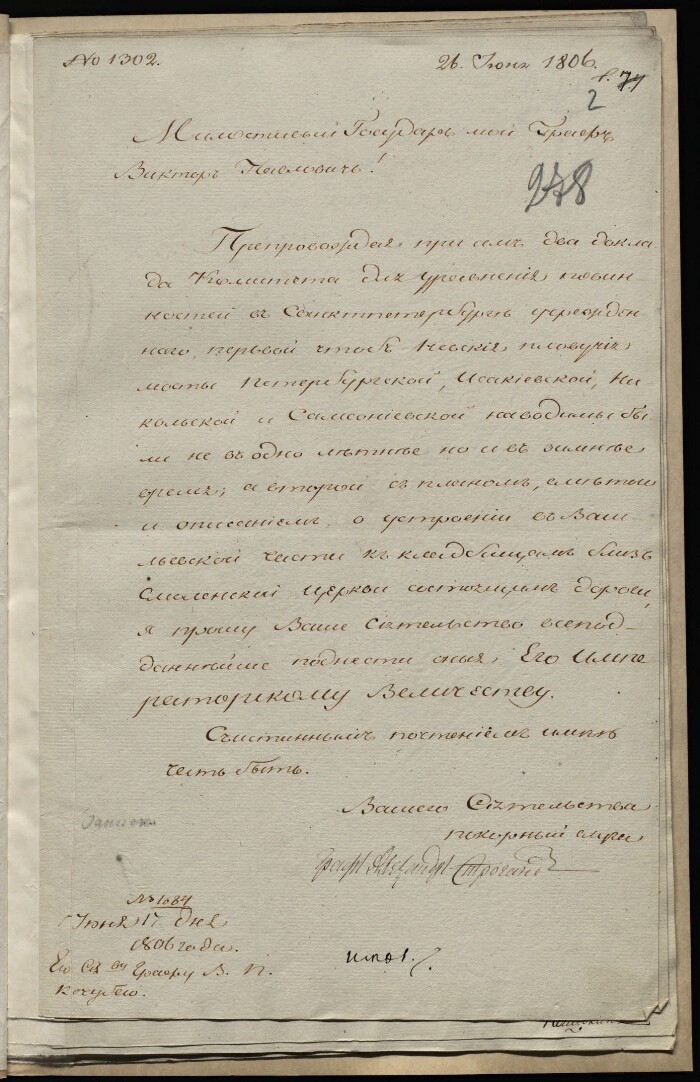 No 1302.
26. Іюня 1806.
л. 74
2
Милостивый Государь мой Графъ
Викторъ Павловичъ!
278
Препровождая при семъ два докла
да Комитета для уравненія повин
ностей въ Санктпетербургѣ учрежден
наго, первой чтобъ Невскія пловучія
мосты Петербургской, Исакіевской, Ни
кольской и Самсоніевской наводимы бы
ли не въ одно лѣтнѣе но и въ зимнѣе
время; а второй съ планомъ, смѣтою
и описаніемъ, о устроеніи въ Васи
льевской части къ кладбищамъ близь
Смоленской Церкви состоящимъ дороги,
я прошу Ваше Сіятельство всепод
даннѣйше поднести оныя, Его Импе
раторскому Величеству.
Съ истиннымъ почтеніемъ имѣю
честь быть.
Вашего Сіятельства
покорный слуга
Графъ Александръ Строгановъ
Записк
No 1684
Іюня 17 дня
1806 года.
Его Сіят ву Графу В. П.
Кочубею.